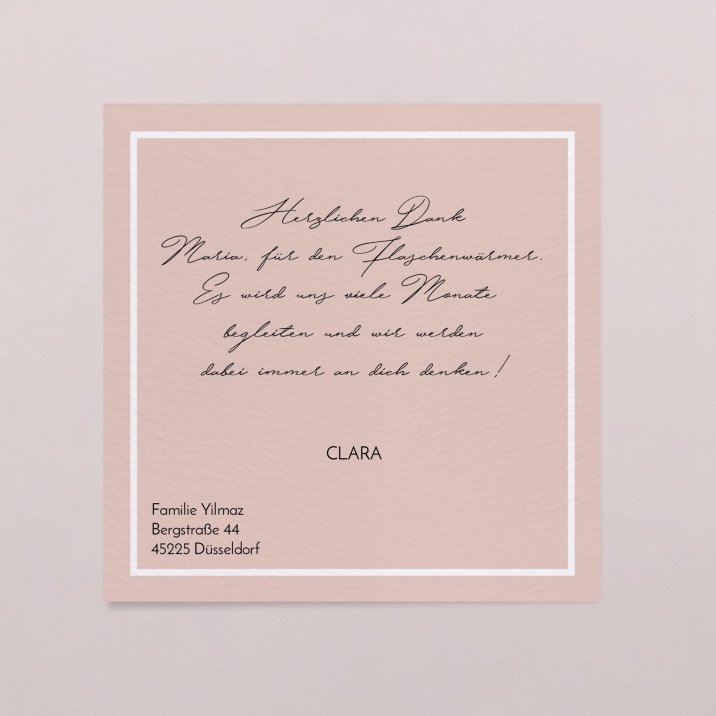 Herzlichen Dank
Maria, für den Flaschenwärmer.
Es wird uns viele Monate
begleiten und wir werden
dabei immer an dich denken!
CLARA
Familie Yilmaz
Bergstraße 44
45225 Düsseldorf